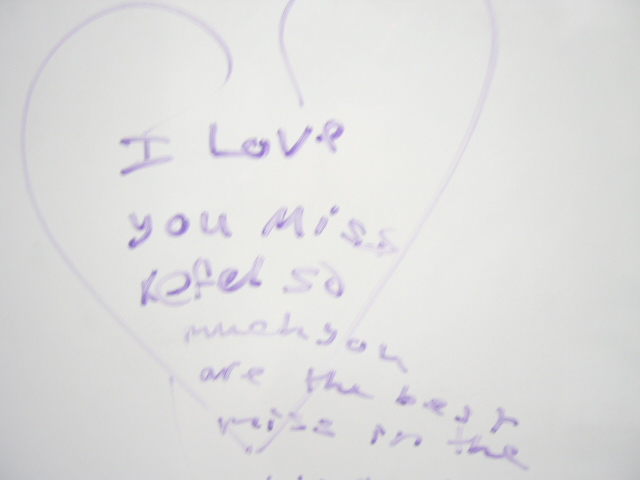 I Love
you Miss
Kefel so
much you
are the best
miss in the